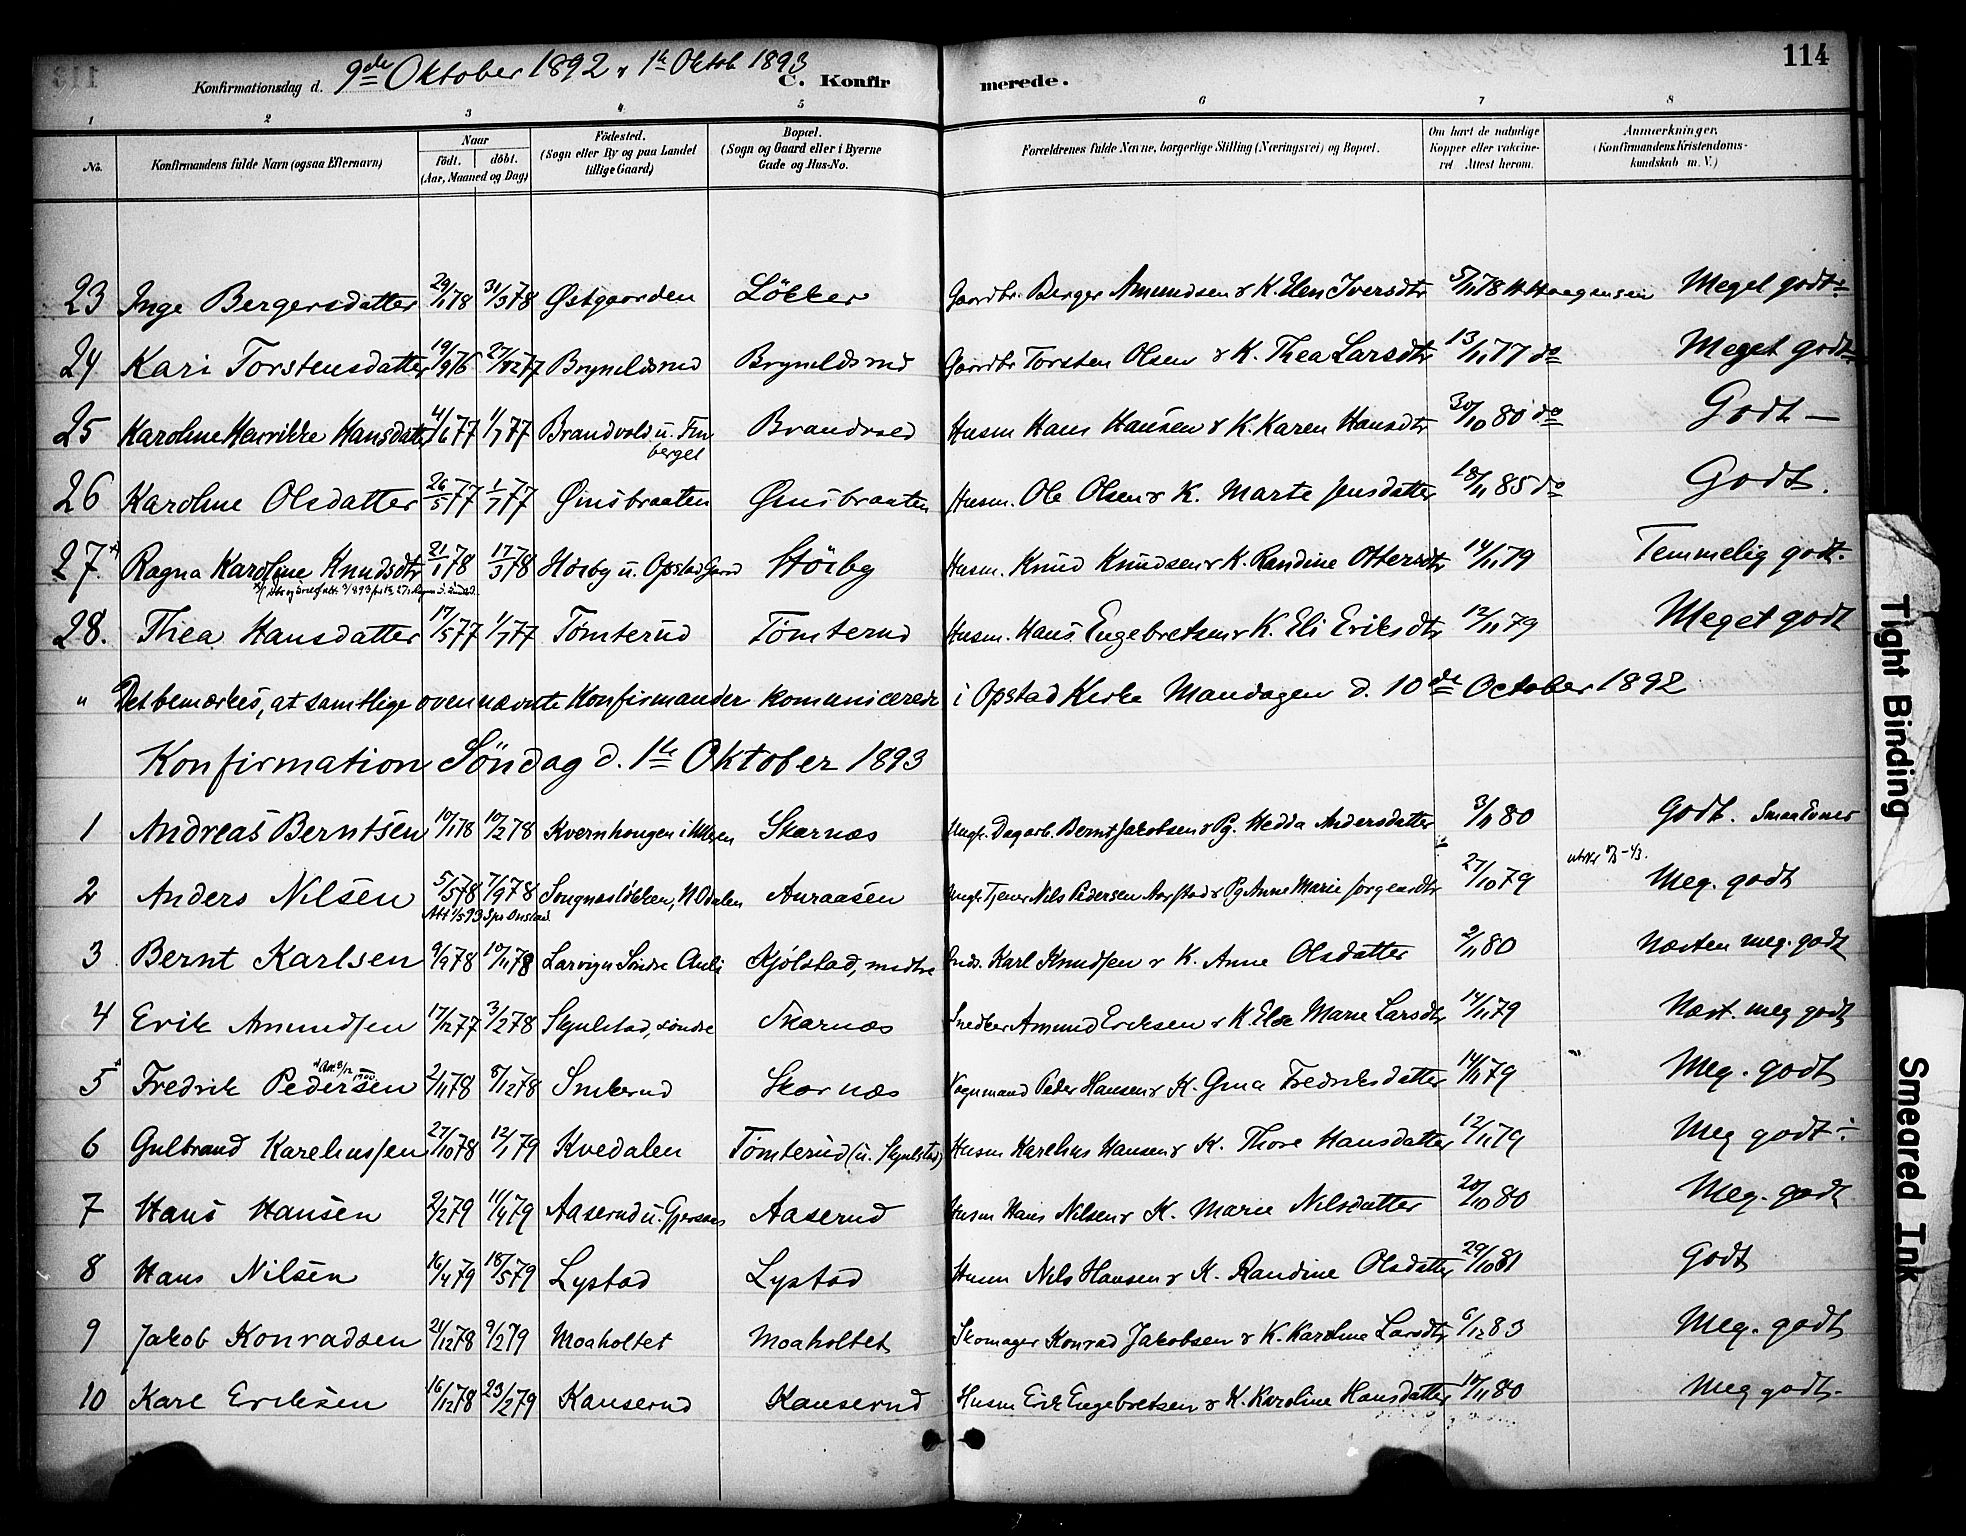 114
Konfirmationsdag d. 9de Oktober 1892 & 1ste Oktob 1893 C. Konfirmerede.
1 2 3 4 5 6 7 8
No. Konfirmandens fulde Navn (ogsaa Efternavn) Naar födt. döbt. (Aar, Maaned og Dag) Födested. (Sogn eller By og paa Landet tillige Gaard) Bopæl. (Sogn og Gaard eller i Byerne Gade og Hus-No. Forældrenes fulde Navne, borgerlige Stilling (Næringsvei) og Bopæl. Om havt de naturlige Kopper eller vaccineret Attest herom. Anmærkninger, (Konfirmandens Kristendomskundskab m. V.)
23 Inge Bergersdatter 29/1 78 31/3 78 Østgaarden Løkker Gaardbr. Berger Amundsen & K. Elen Iversdtr 5/11 78 H. Haagensen Meget godt
24 Kari Torstensdatter 19/9 76 Bryneldsrud Bryneldsrud Gaardbr Torsten Olsen & K. Thea Larsdtr 13/11 77 do Meget godt
25 Karoline Henrikke Hansdatter 4/6 77 1/7 77 Brandvold u. Finberget Brandvold Husm Hans Hansen & K. Karen Hansdtr 30/10 80 do Godt –
26 Karoline Olsdatter 26/5 77 1/7 77 Ømsbraaten Ømsbraaten Husm. Ole Olsen & K. Marte Jensdatter 18/11 85 do Godt.
27. Ragna Karoline Knudsdtr 21/1 78 17/3 78 Hörby u. Opstad Gaard Störby Husm. Knud Knudsen & K. Randine Ottersdtr 14/11 79 Temmelig godt.
28. Thea Hansdatter 17/5 77 1/7 77 Tömterud Tömterud Husm. Hans Engebretsen & K. Eli Eriksdtr 12/11 79 Meget godt
" Det bemærkes, at samtlige ovennævnte Konfirmander komunicerede i Opstad Kirke Mandagen d. 10de October 1892
Konfirmation Söndag d. 1ste Oktober 1893
1 Andreas Berntsen 10/1 78 10/2 78 Kvernhaugen i Skarnæs Ungk. Dagarb. Bernt Jakobsen & Pg. Hedda Andersdatter 3/11 80 Godt.
2 Anders Nilsen 5/5 78 7/9 78 Songnesløkken, N Odalen Auraasen Ungk Tjener Nils Pedersen Aarstad & Pg Anne Marie Jørgensdtr 27/10 79 Meg. godt
3 Bernt Karlsen 9/9 78 10/11 78 Larvign Söndre Auli Kjölstad, nedtre Inds. Karl Knudsen & K. Anne Olsdatter 2/11 80 Næsten meg. godt
4 Erik Amundsen 17/12 77 3/2 78 Skyllstad, søndre Skarnæs Snedker Amund Eriksen & K. Else Marie Larsdtr 14/11 79 Næst. meg godt
5 Fredrik Pedersen 2/11 78 8/12 78 Smkerud Skarnæs Vognmand Peder Hansen & K. Gina Fredriksdatter 14/11 79 Meg. godt
6 Gulbrand Kareliussen 27/10 78 12/1 79 Kvedalen Tömterud (u. Skyllstad) Husm Karelius Hansen & K. Thore Hansdatter 12/11 79 Meg godt
7 Hans Hansen 2/2 79 11/4 79 Aaserud u. Gjersøes Aaserud Husm Hans Nilsen & K. Marie Nilsdatter 20/10 80 Meg. godt
8 Hans Nilsen 16/4 79 18/5 79 Lystad Lystad Husm Nils Hansen & K. Randine Olsdatter 29/10 81 Godt
9 Jakob Konradsen 21/12 78 9/2 79 Moaholtet Moaholtet Skomager Konrad Jakobsen & K. Karoline Larsdtr 6/12 83 Meg. godt
10 Karl Eriksen 16/12 78 23/2 79 Kanserud Kanserud Husm Erik Engebretsen & K. Karoline Hansdatter 10/11 80 Meg godt.
Tight Binding
Smeared Ink